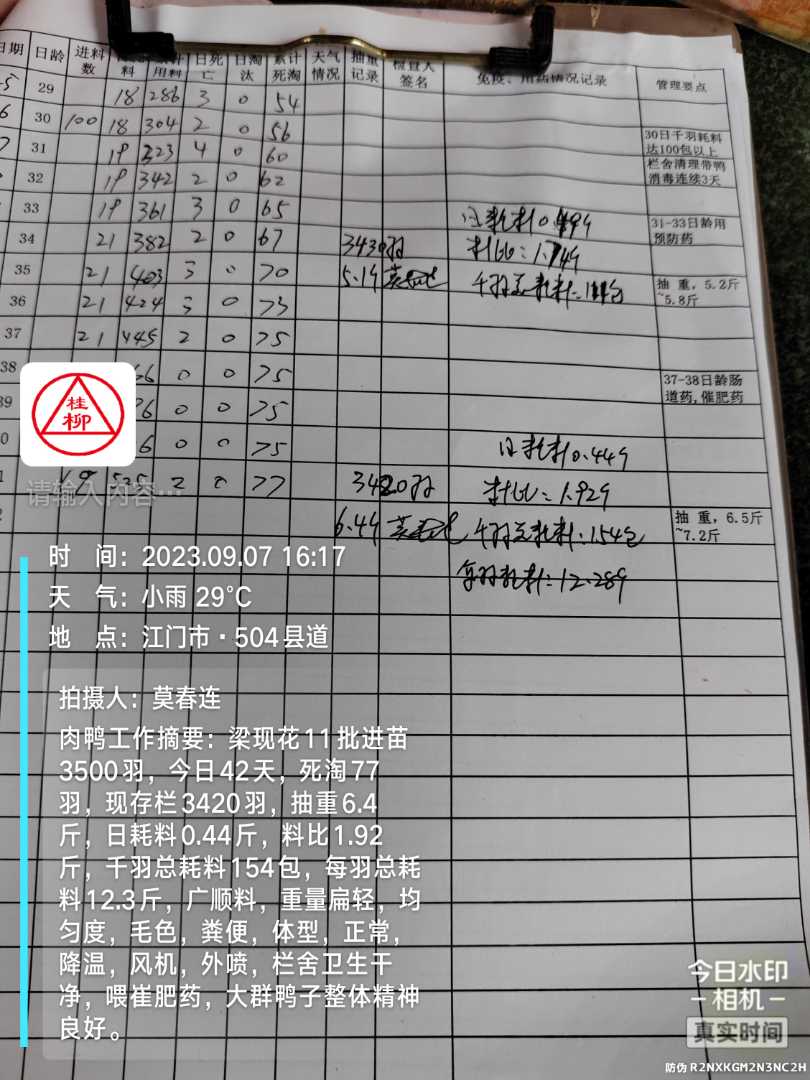 日期 日龄 进料数 料 用料 日死亡 日淘汰 累计死淘 天气情况 抽重记录 检查人签名 免疫、用药情况记录 管理要点
5 29 18 286 3 0 54
6 30 100 18 304 2 0 56 30日千羽耗料达100包以上
7 31 19 323 4 0 60 栏舍清理带鸭消毒连续3天
32 19 342 2 0 62
33 19 361 3 0 65 31-33日龄用预防药
34 21 382 2 0 67 3430羽 料比:1.74斤
35 21 403 3 0 70 5.1斤 千羽总耗料: 抽 重,5.2斤~5.8斤
36 21 424 3 0 73
37 21 445 2 0 75
38 66 0 0 75 37-38日龄肠道药,催肥药
39 0 0 75
0 6 0 0 75 日耗料0.44斤
1 2 0 77 3420羽 料比:1.92斤
2 6.4斤 千羽总耗料:154包 抽 重,6.5斤~7.2斤
每羽耗料:12.28斤
桂柳
请输入内容…
时 间:2023.09.07 16:17
天 气:小雨 29℃
地 点:江门市·504县道
拍摄人:莫春连
肉鸭工作摘要:梁现花11批进苗
3500羽,今日42天,死淘77
羽,现存栏3420羽,抽重6.4
斤,日耗料0.44斤,料比1.92
斤,千羽总耗料154包,每羽总耗
料12.3斤,广顺料,重量扁轻,均
匀度,毛色,粪便,体型,正常,
降温,风机,外喷,栏舍卫生干
净,喂崔肥药,大群鸭子整体精神
良好。
今日水印
相机
真实时间
防伪 R2NXKGM2N3NC2H